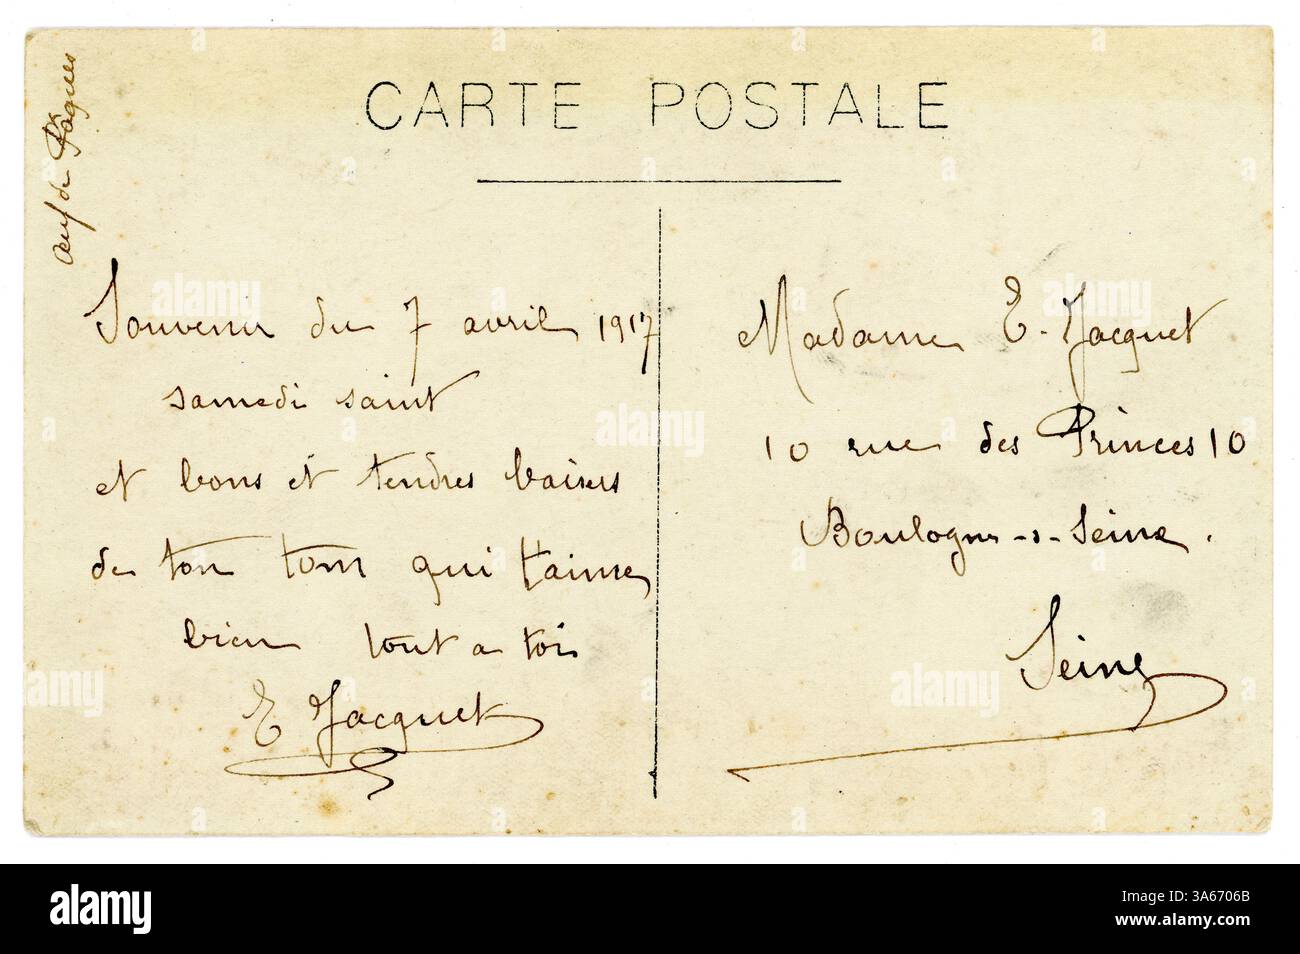 œuf de Pâques
CARTE POSTALE
Souvenir du 7 avril 1917
samedi saint
et bons et tendres baisers
de ton tom qui t'aime
bien tout a toi
E Jacquet
Madame E. Jacquet
10 rue des Princes 10
Boulogne-s-Seine.
Seine
alamy
Image ID: 3A6706B
www.alamy.com